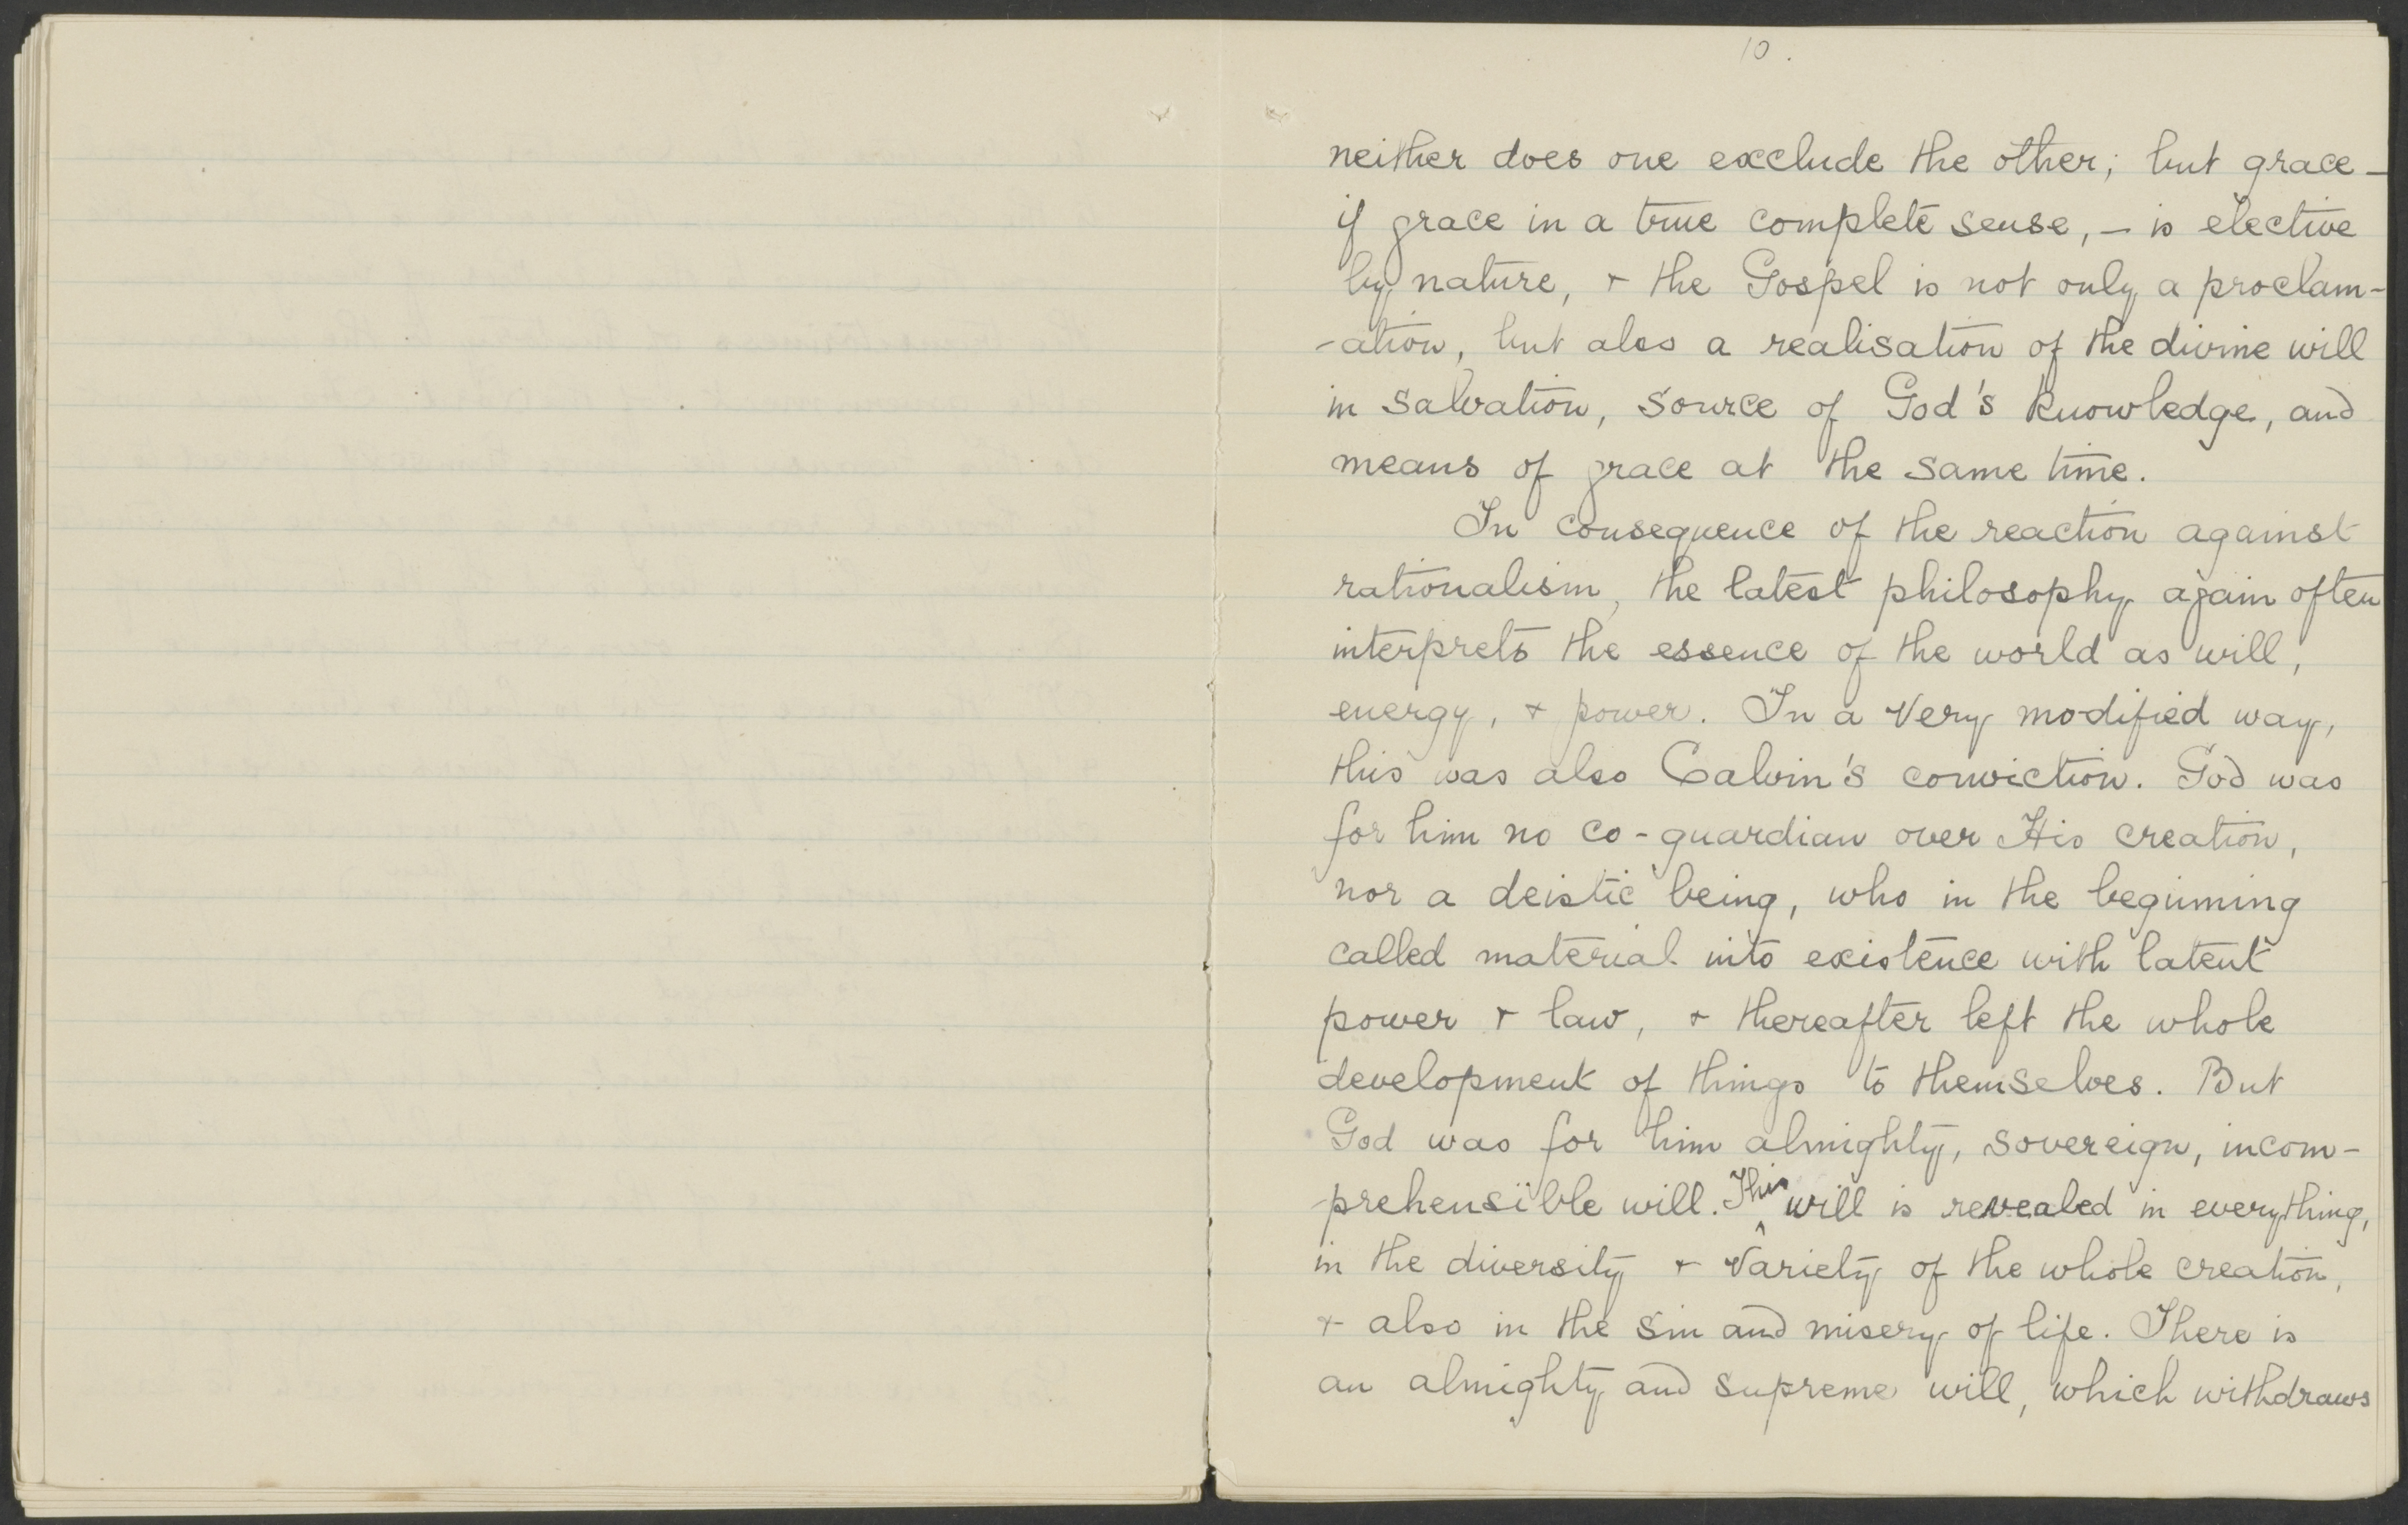 10.
neither does one exclude the other; but grace –
if grace in a true complete sense, – is elective
by nature, + the Gospel is not only a proclam-
-ation, but also a realisation of the divine will
in salvation, source of God's knowledge, and
means of grace at the same time.
In consequence of the reaction against
rationalism, the latest philosophy again often
interprets the essence of the world as will,
energy, + power. In a very modified way,
this was also Calvin's conviction. God was
for him no co-guardian over His creation,
nor a deistic being, who in the beginning
called material into existence with latent
power + law, + thereafter left the whole
development of things to themselves. But
God was for him almighty, sovereign, incom-
prehensible will. This will is revealed in everything,
in the diversity + variety of the whole creation,
+ also in the sin and misery of life. There is
an almighty and supreme will, which withdraws